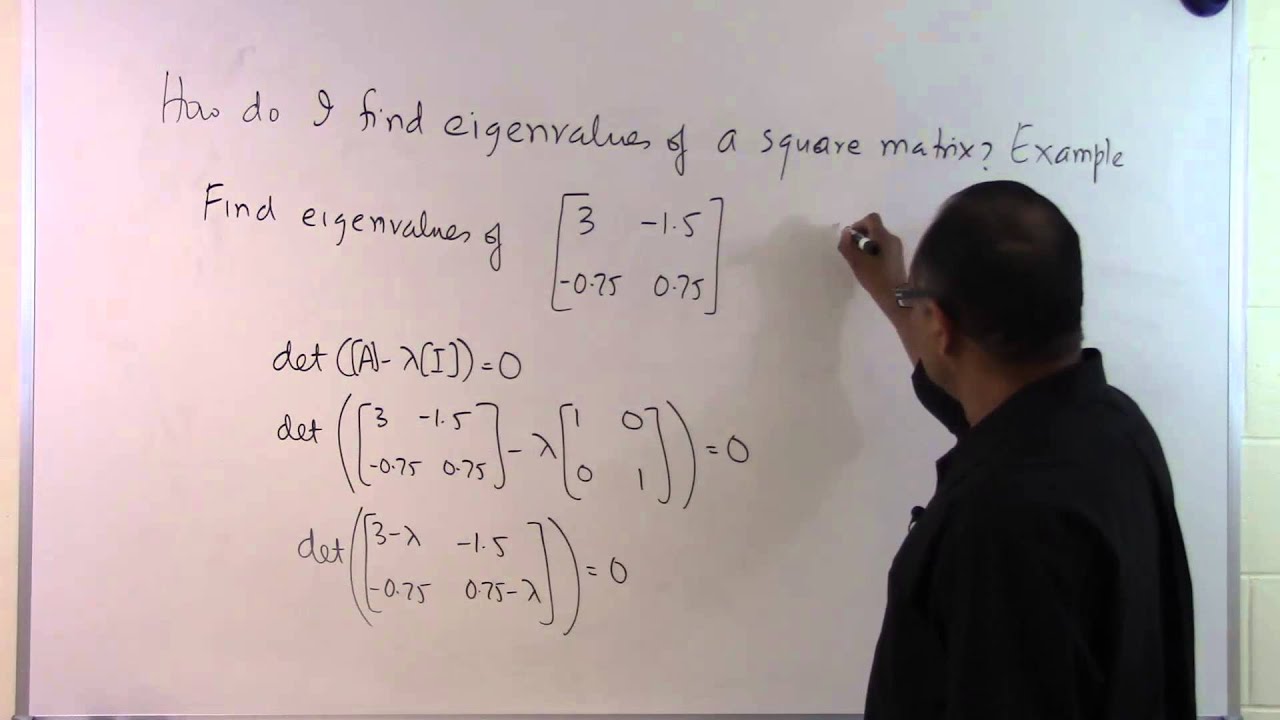 How do I find eigenvalues of a square matrix? Example
Find eigenvalues of [3 -1.5
-0.75 0.75]
det([A]-λ[I])=0
det([3 -1.5
-0.75 0.75]-λ[1 0
0 1])=0
det([3-λ -1.5
-0.75 0.75-λ])=0